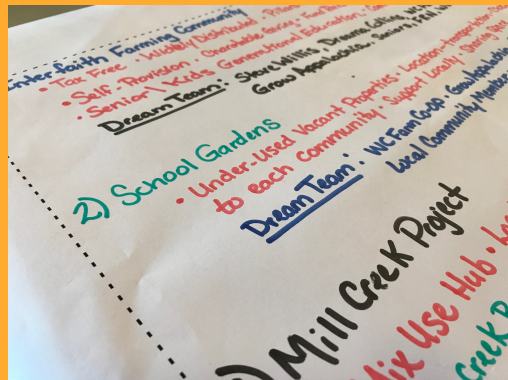 Interfaith Farming Community
• Tax Free • Widely Distributed •
• Self-Provision • Charitable
• Senior \ Kids Generational Education,
Dream Team: Steve Willis, Deanna Collins,
Grow Appalachia, Seniors,
2) School Gardens
• Under-Used Vacant Properties • Location-Transportation
to each Community • Support Locally • Sharing
Dream Team: WC Farm Co-op • Grow Appalachia
Local Community Members
Mill Creek Project
Mix Use Hub •
Creek